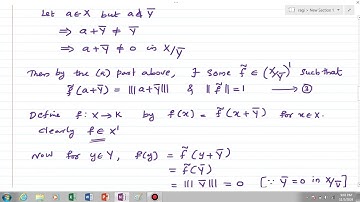 Let a ∈ X but a ∉ Y̅
⇒ a + Y̅ ≠ Y̅
⇒ a + Y̅ ≠ 0 in X/Y̅
Then by the (a) part above, ∃ some f̃ ∈ (X/Y̅)' such that
f̃(a+Y̅) = |||a+Y̅||| & ||f̃|| = 1 → ③
Define f: X → K by f(x) = f̃(x+Y̅) for x ∈ X.
clearly f ∈ X'
Now for y ∈ Y, f(y) = f̃(y+Y̅)
= f̃(Y̅)
= |||Y̅||| = 0 [∵ Y̅ = 0 in X/Y̅]